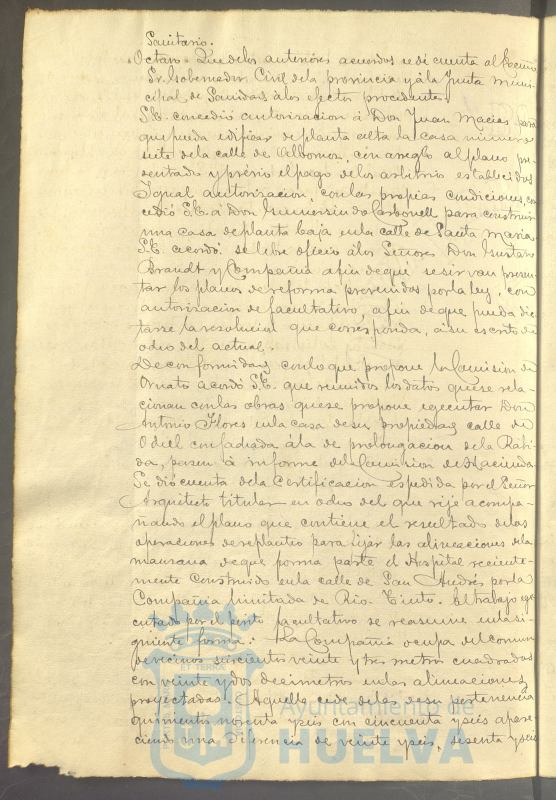 Sanitario.
Octavo. Que de los anteriores acuerdos se dé cuenta al Excmo
Sr. Gobernador Civil de la provincia y á la Junta Muni-
cipal de Sanidad á los efectos procedentes.
S.E. concedió autorizacion á Don Juan Macias para
que pueda edificar de planta alta la casa numero
siete de la calle de Albornoz, con arreglo al plano pre-
sentado y previo el pago de los arbitrios establecidos
Igual autorizacion, con las propias condiciones, con
cedió S.E. á Don Gumersindo Carbonell para construir
una casa de planta baja en la calle de Santa Maria.
S.E. acordó se libre oficio á los Señores Don Gustavo
Brandt y Compañia a fin de que se sirvan presen-
tar los planos de reforma prevenidos por la ley, con
autorizacion de facultativo, a fin de que pueda dic-
tarse la resolucion que corresponda, á su escrito de
ocho del actual.
De conformidad con lo que propone la Comision de
Ornato acordó S.E. que reunidos los datos que se rela-
cionan con las obras que se propone ejecutar Don
Antonio Flores en la casa de su propiedad calle de
Odiel con fachada á la de prolongacion de la Rábi-
da, pasen á informe de la Comision de Hacienda
Se dió cuenta de la Certificacion expedida por el Señor
Arquitecto titular en ocho del que rije acompa-
ñando el plano que contiene el resultado de las
operaciones de replanteo para fijar las alineaciones de la
manzana de que forma parte el Hospital reciente-
mente construido en la calle de San Andrés por la
Compañia limitada de Rio-Tinto. El trabajo eje-
cutado por el perito facultativo se resume en la si-
guiente forma: La Compañia ocupa del comun
de vecinos seiscientos veinte y tres metros cuadrados
con veinte y dos decimetros en las alineaciones
proyectadas. Aquella cede de los de su pertenencia
quinientos noventa y seis con cincuenta y seis apare-
ciendo una diferencia de veinte y seis, sesenta y seis
ET TERRÆ
Ayuntamiento de
HUELVA